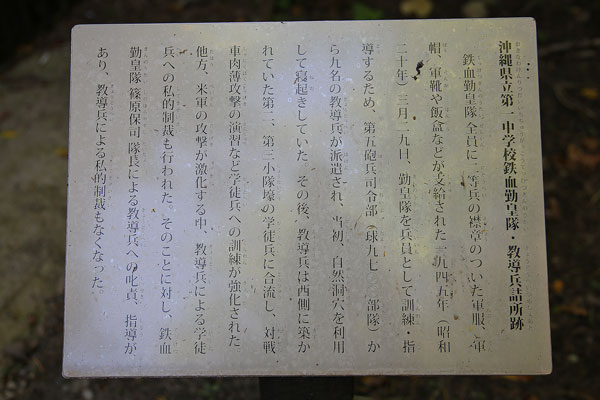 沖縄県立第一中学校鉄血勤皇隊・教導兵詰所跡
鉄血勤皇隊 全員に二等兵の襟章のついた軍服、軍
帽、軍靴や飯盒などが支給された一九四五年(昭和
二十年)三月二九日、勤皇隊を兵員として訓練・指
導するため、第五砲兵司令部(球九七 部隊)か
ら九名の教導兵が派遣され、当初、自然洞穴を利用
して寝起きしていた。その後、教導兵は西側に築か
れていた第二、第三小隊壕の学徒兵に合流し、対戦
車肉薄攻撃の演習など学徒兵への訓練が強化された。
他方、米軍の攻撃が激化する中、教導兵による学徒
兵への私的制裁も行われた。そのことに対し、鉄血
勤皇隊 篠原保司 隊長による教導兵への叱責、指導が
あり、教導兵による私的制裁もなくなった。